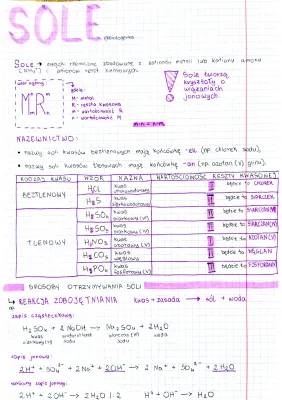 SOLE
SOLE → związki chemiczne zbudowane z kationów metali lub kationu amonu
(NH₄⁺) i anionów reszt kwasowych.
Wzór ogólny:
gdzie:
M - metal
R - reszta kwasowa
Sole tworzą
kryształy o
wiązaniach
jonowych
NAZEWNICTWO:
• nazwy soli kwasów beztlenowych mają końcówkę -ek (np. chlorek sodu),
• nazwy soli kwasów tlenowych mają końcówkę -an (np. azotan (V) glinu).
RODZAJ KWASU WZÓR NAZWA WARTOŚCIOWOŚĆ RESZTY KWASOWEJ
BEZTLENOWY
HCl kwas chlorowodorowy będzie to CHLOREK
H₂S kwas siarkowodorowy będzie to SIARCZEK
TLENOWY
H₂SO₄ kwas siarkowy (VI) będzie to SIARCZAN (VI)
H₂SO₃ kwas siarkowy (IV) będzie to SIARCZAN (IV)
HNO₃ kwas azotowy (V) będzie to AZOTAN (V)
H₂CO₃ kwas węglowy będzie to WĘGLAN
H₃PO₄ kwas fosforowy (V) będzie to FOSFORAN
SPOSOBY OTRZYMYWANIA SOLI
↳ REAKCJA ZOBOJĘTNIANIA kwas + zasada → sól + woda
zapis cząsteczkowy:
H₂SO₄ + 2NaOH → Na₂SO₄ + 2H₂O
zapis jonowy:
2H⁺ + SO₄²⁻ + 2Na⁺ + 2OH⁻ → 2Na⁺ + SO₄²⁻ + 2H₂O
skrócony zapis jonowy:
2H⁺ + 2OH⁻ → 2H₂O |:2 H⁺ + OH⁻ → H₂O